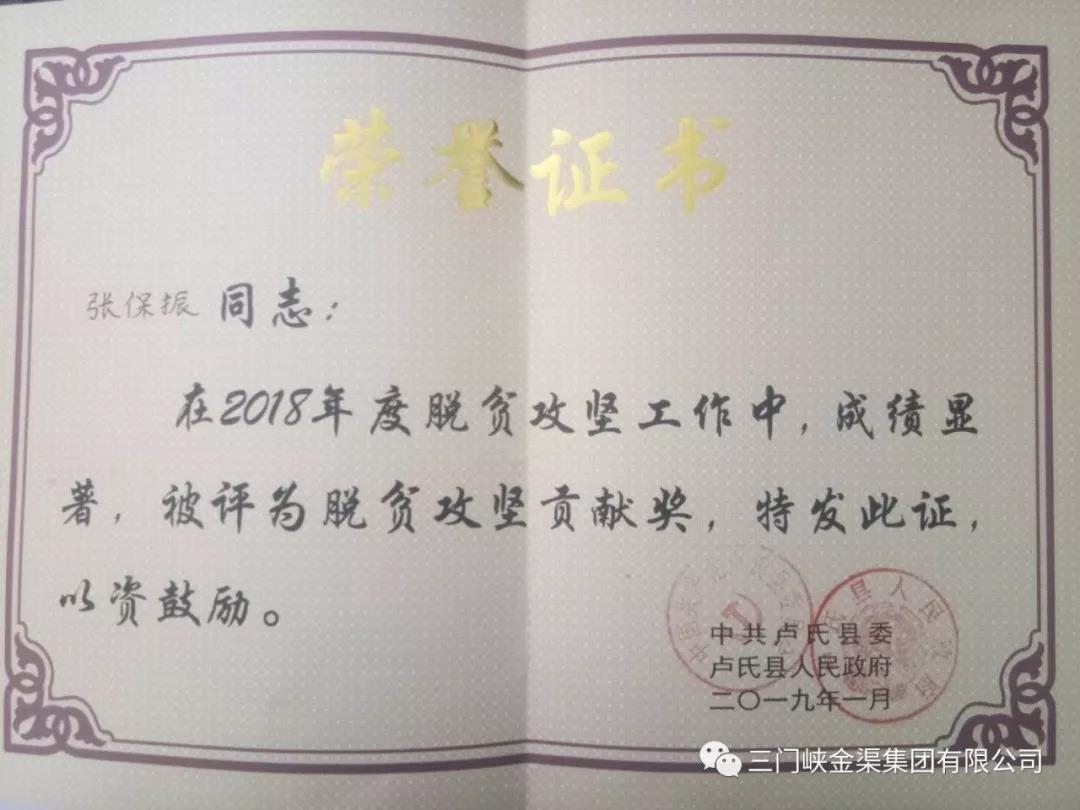 荣誉证书
张保振 同志：
在2018年度脱贫攻坚工作中，成绩显
著，被评为脱贫攻坚贡献奖，特发此证，
以资鼓励。
中共卢氏县委
卢氏县人民政府
二〇一九年一月
三门峡金渠集团有限公司